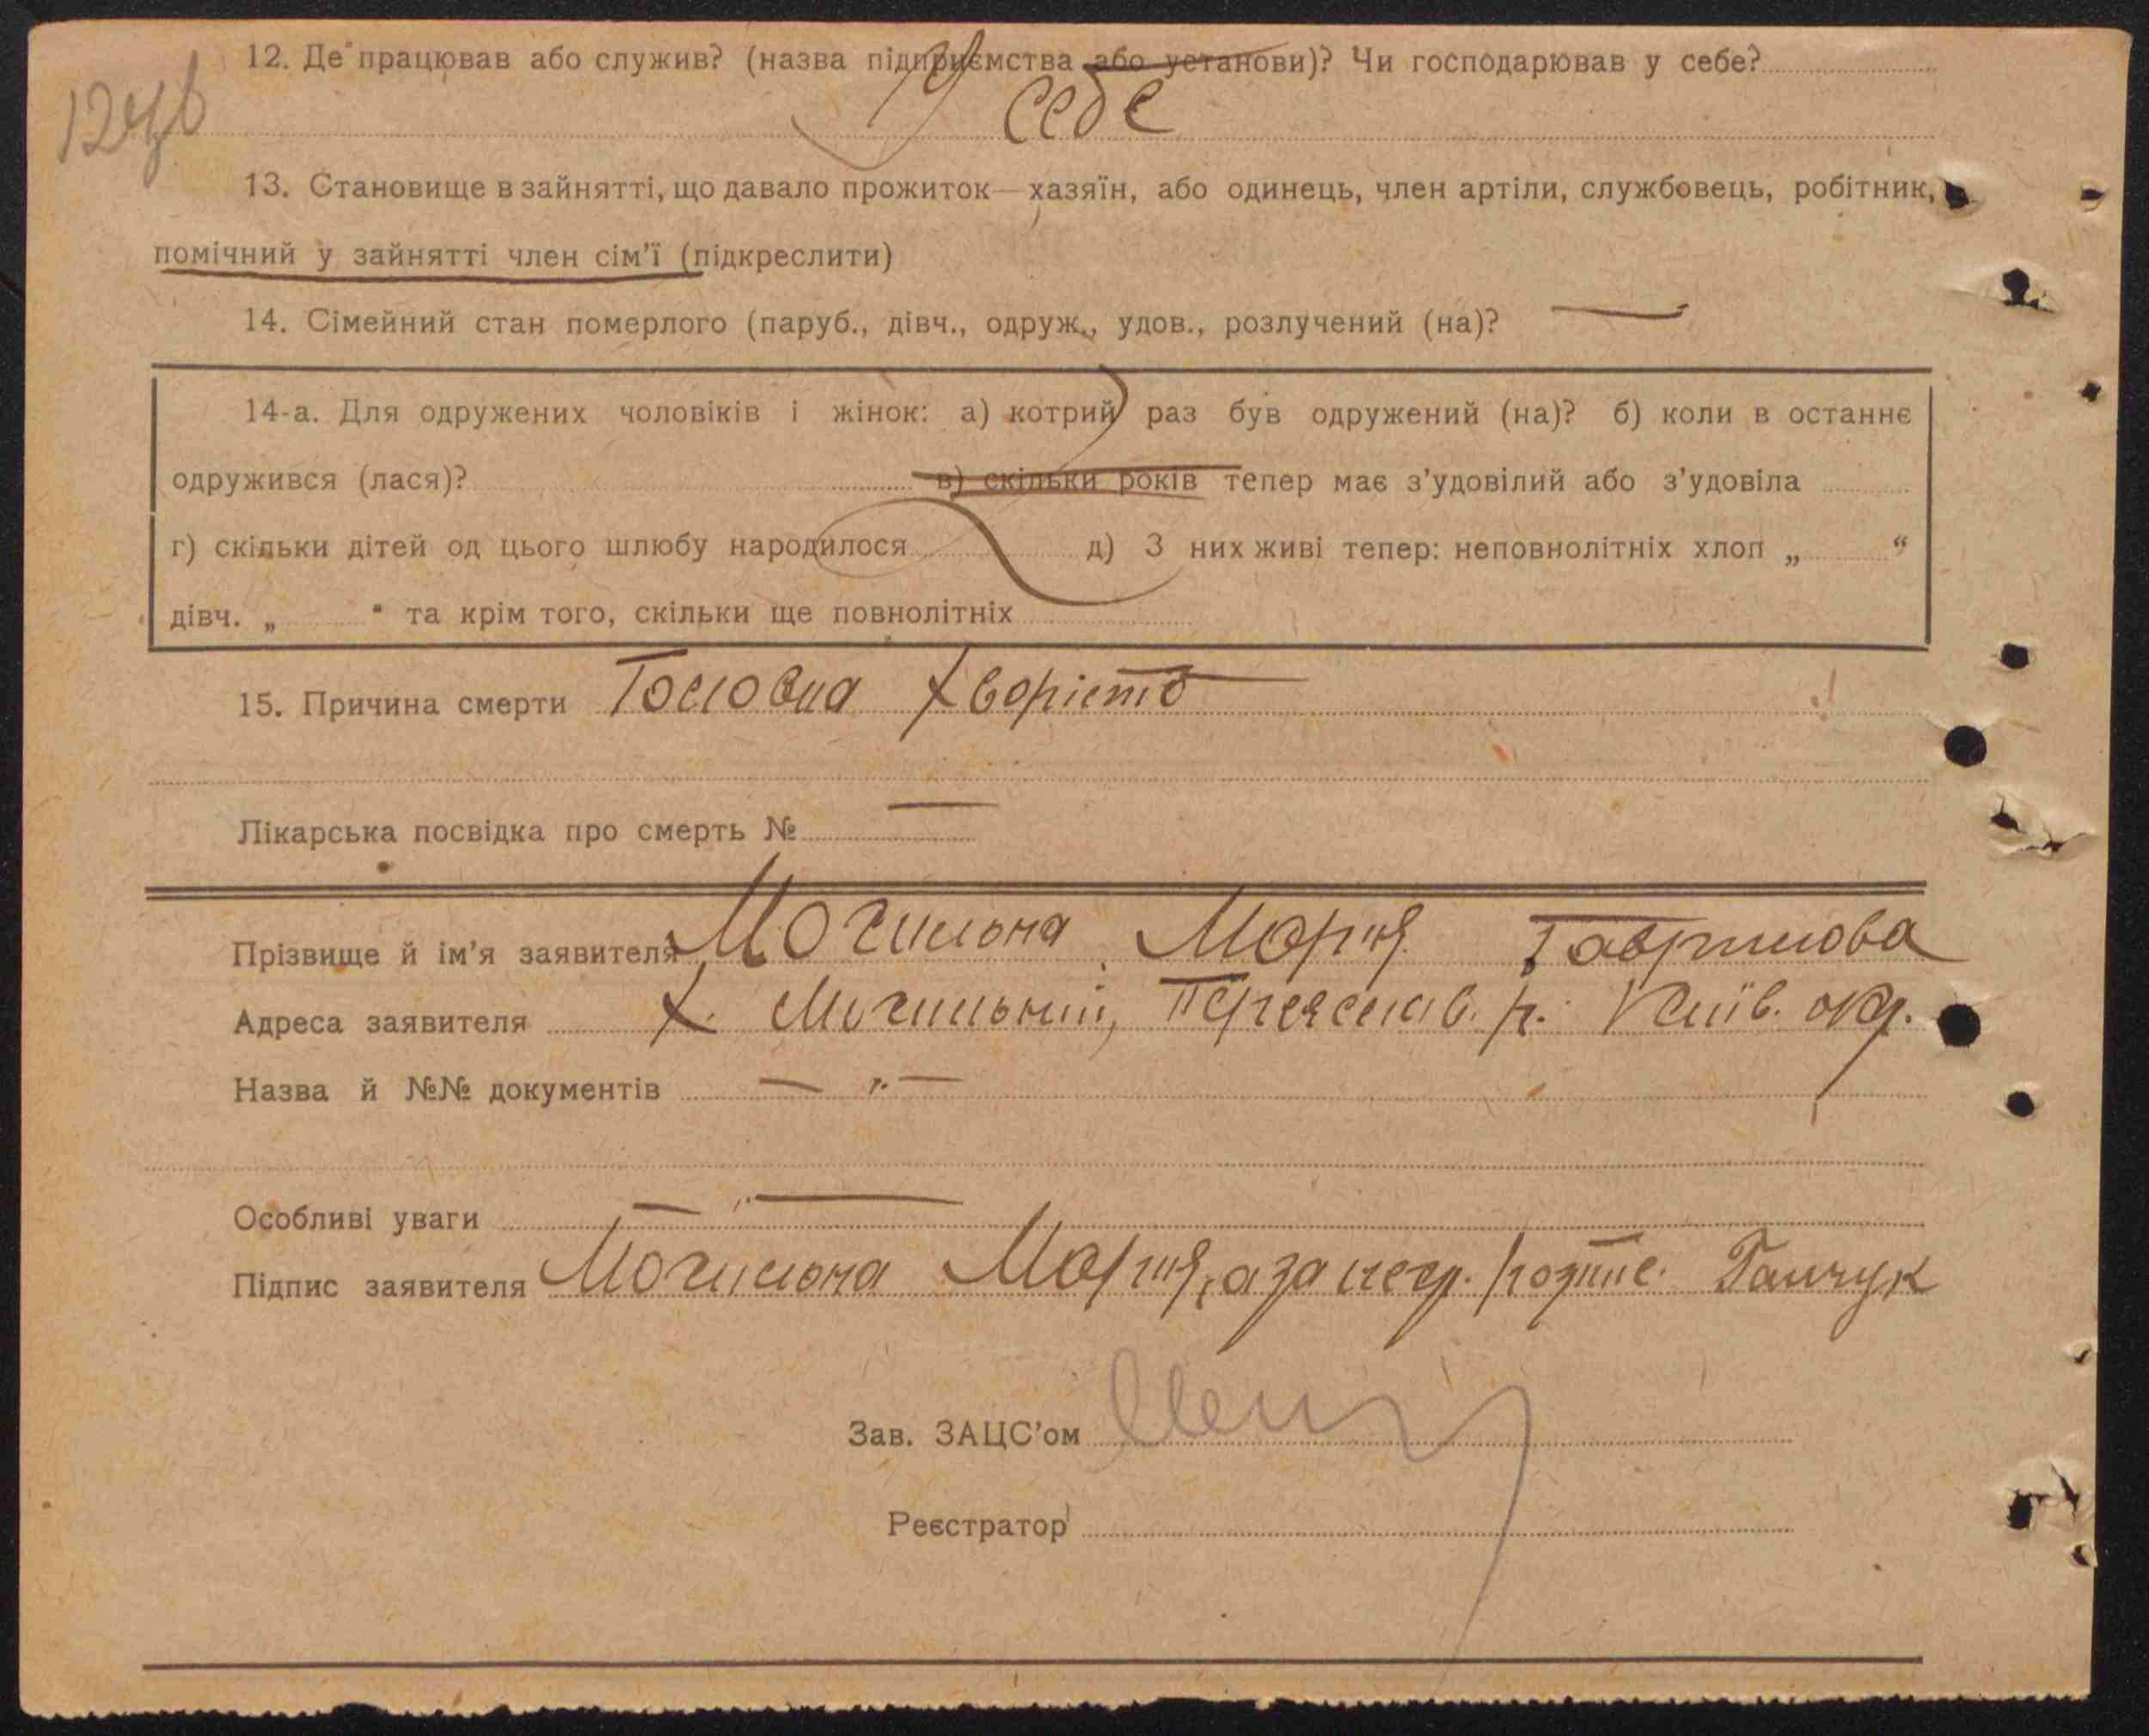 12. Де працював або служив? (назва підприємства або установи)? Чи господарював у себе?
У себе
13. Становище в зайнятті, що давало прожиток — хазяїн, або одинець, член артіли, службовець, робітник,
помічний у зайнятті член сім'ї (підкреслити)
14. Сімейний стан померлого (паруб., дівч., одруж., удов., розлучений (на)? —
14-а. Для одружених чоловіків і жінок: а) котрий раз був одружений (на)? б) коли в останнє
одружився (лася)? в) скільки років тепер має з'удовілий або з'удовіла
г) скільки дітей од цього шлюбу народилося д) З них живі тепер: неповнолітніх хлоп „ “
дівч. „ “ та крім того, скільки ще повнолітніх
15. Причина смерти Головна хворість
Лікарська посвідка про смерть № —
Прізвище й ім'я заявителя Могильна Мария Гаврилова
Адреса заявителя х. Могильний, Переяслав. р. Київ. окр.
Назва й №№ документів — " —
Особливі уваги — " —
Підпис заявителя Могильна Мария, а за негр. розпис. Ганчук
Зав. ЗАЦС'ом
Реєстратор